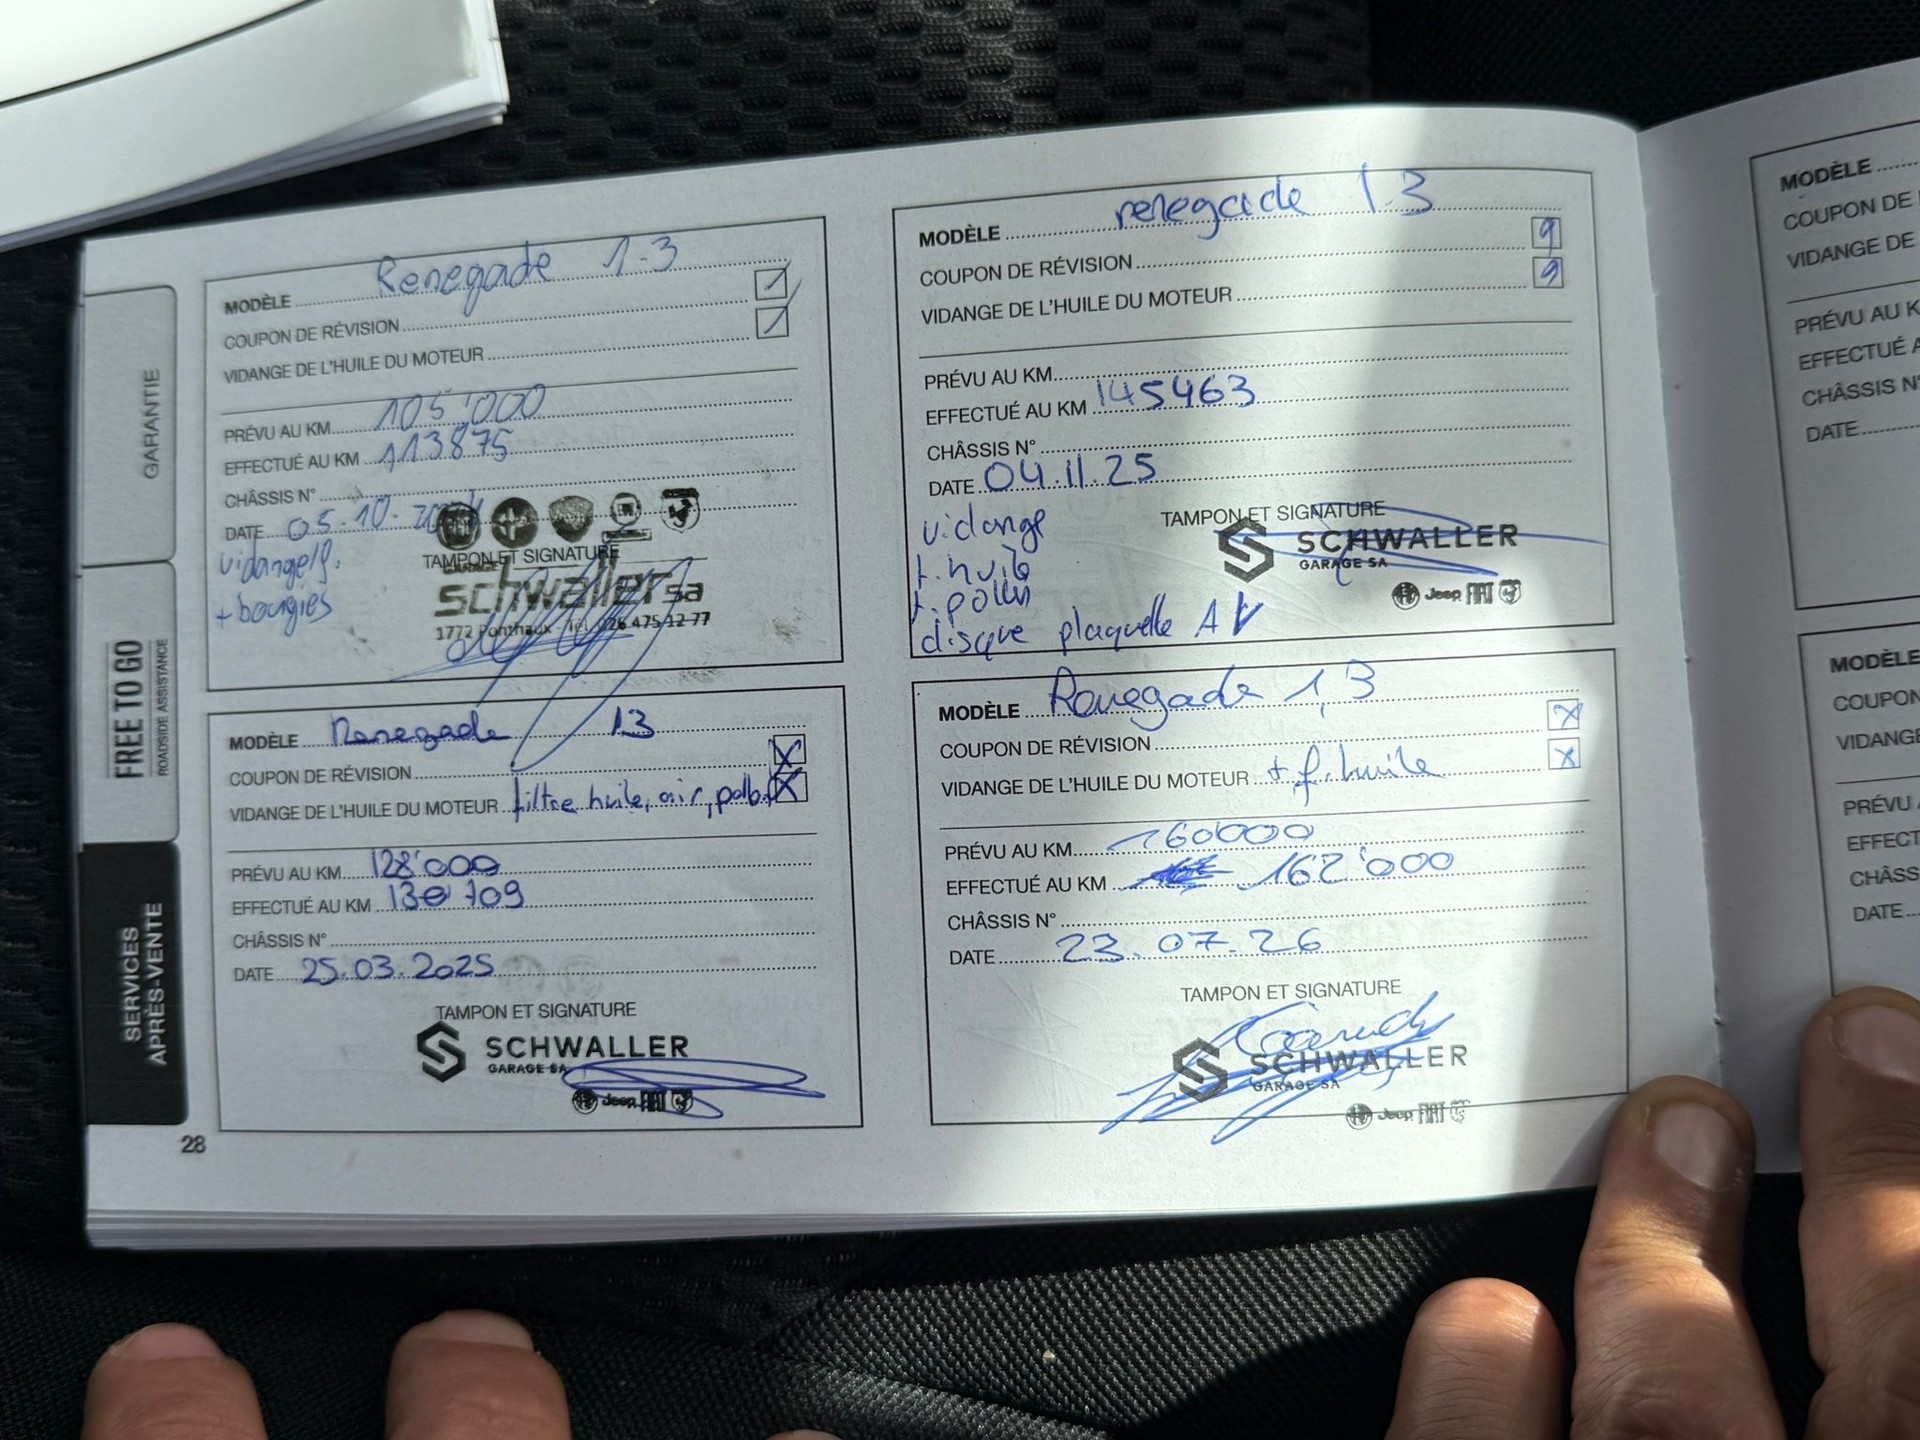 GARANTIE
FREE TO GO
ROADSIDE ASSISTANCE
SERVICES
APRÈS-VENTE
MODÈLE Renegade 1.3
COUPON DE RÉVISION
VIDANGE DE L'HUILE DU MOTEUR
PRÉVU AU KM 105'000
EFFECTUÉ AU KM 113875
CHÂSSIS N°
DATE 05.10.
vidange/f.
+ bougies
TAMPON ET SIGNATURE
schwaller sa
1772 Ponthaux - Tél. 026 475 12 77
MODÈLE Renegade 1.3
COUPON DE RÉVISION X
VIDANGE DE L'HUILE DU MOTEUR filtre huile, air, X
PRÉVU AU KM 128'000
EFFECTUÉ AU KM 130709
CHÂSSIS N°
DATE 25.03.2025
TAMPON ET SIGNATURE
SCHWALLER
GARAGE SA
Jeep FIAT
28
MODÈLE renegade 1.3
COUPON DE RÉVISION 9
VIDANGE DE L'HUILE DU MOTEUR 9
PRÉVU AU KM
EFFECTUÉ AU KM 145463
CHÂSSIS N°
DATE 04.11.25
vidange
f. huile
f. pollen
disque plaquette AV
TAMPON ET SIGNATURE
SCHWALLER
GARAGE SA
Jeep FIAT
MODÈLE Renegade 1,3
COUPON DE RÉVISION X
VIDANGE DE L'HUILE DU MOTEUR + f. huile X
PRÉVU AU KM 160000
EFFECTUÉ AU KM 162'000
CHÂSSIS N°
DATE 23.07.26
TAMPON ET SIGNATURE
SCHWALLER
GARAGE SA
Jeep FIAT
MODÈLE
COUPON DE
VIDANGE DE
PRÉVU AU K
EFFECTUÉ A
CHÂSSIS N°
DATE
MODÈLE
COUPON
VIDANGE
PRÉVU A
EFFECT
CHÂSS
DATE